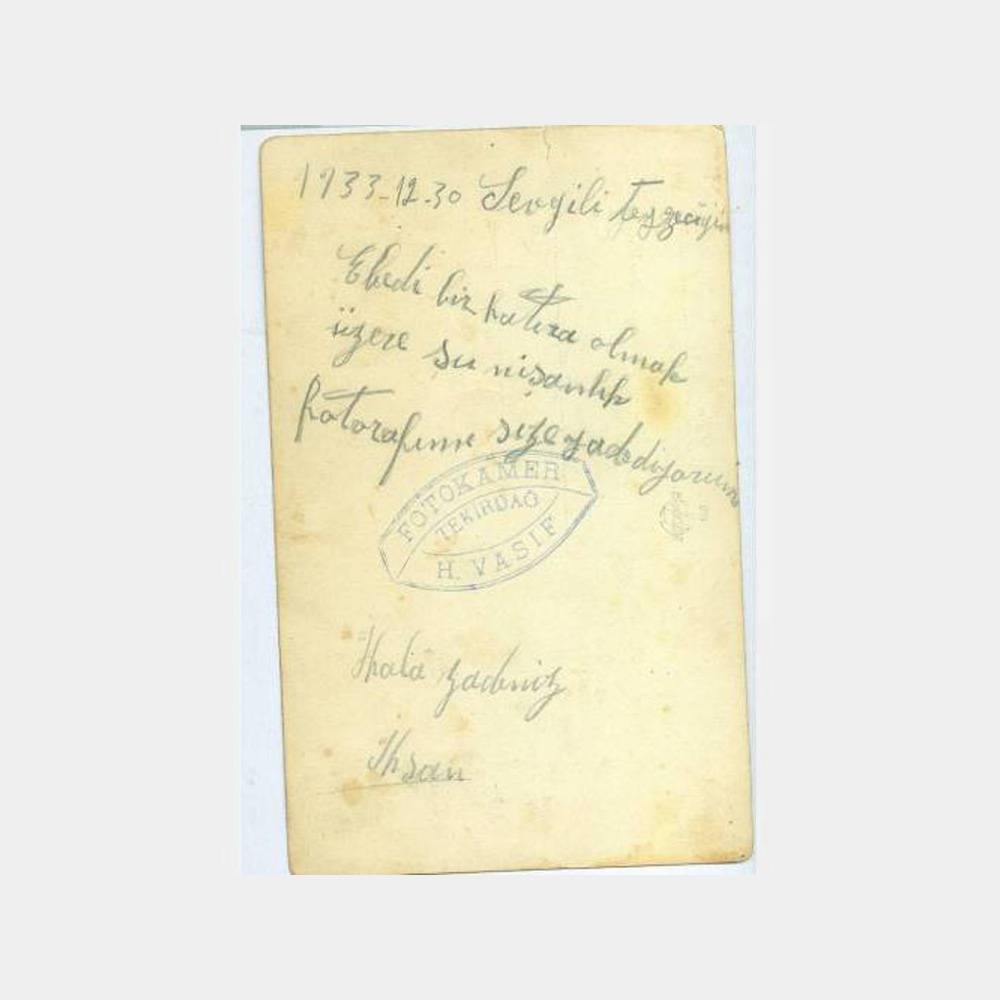 1933-12-30 Sevgili teyzeciğim
Ebedi bir hatıra olmak
üzere şu nişanlık
fotorafımı size yadediyorum
FOTOKÂMER
TEKİRDAĞ
H. VASIF
Hala zadeniz
İhsan